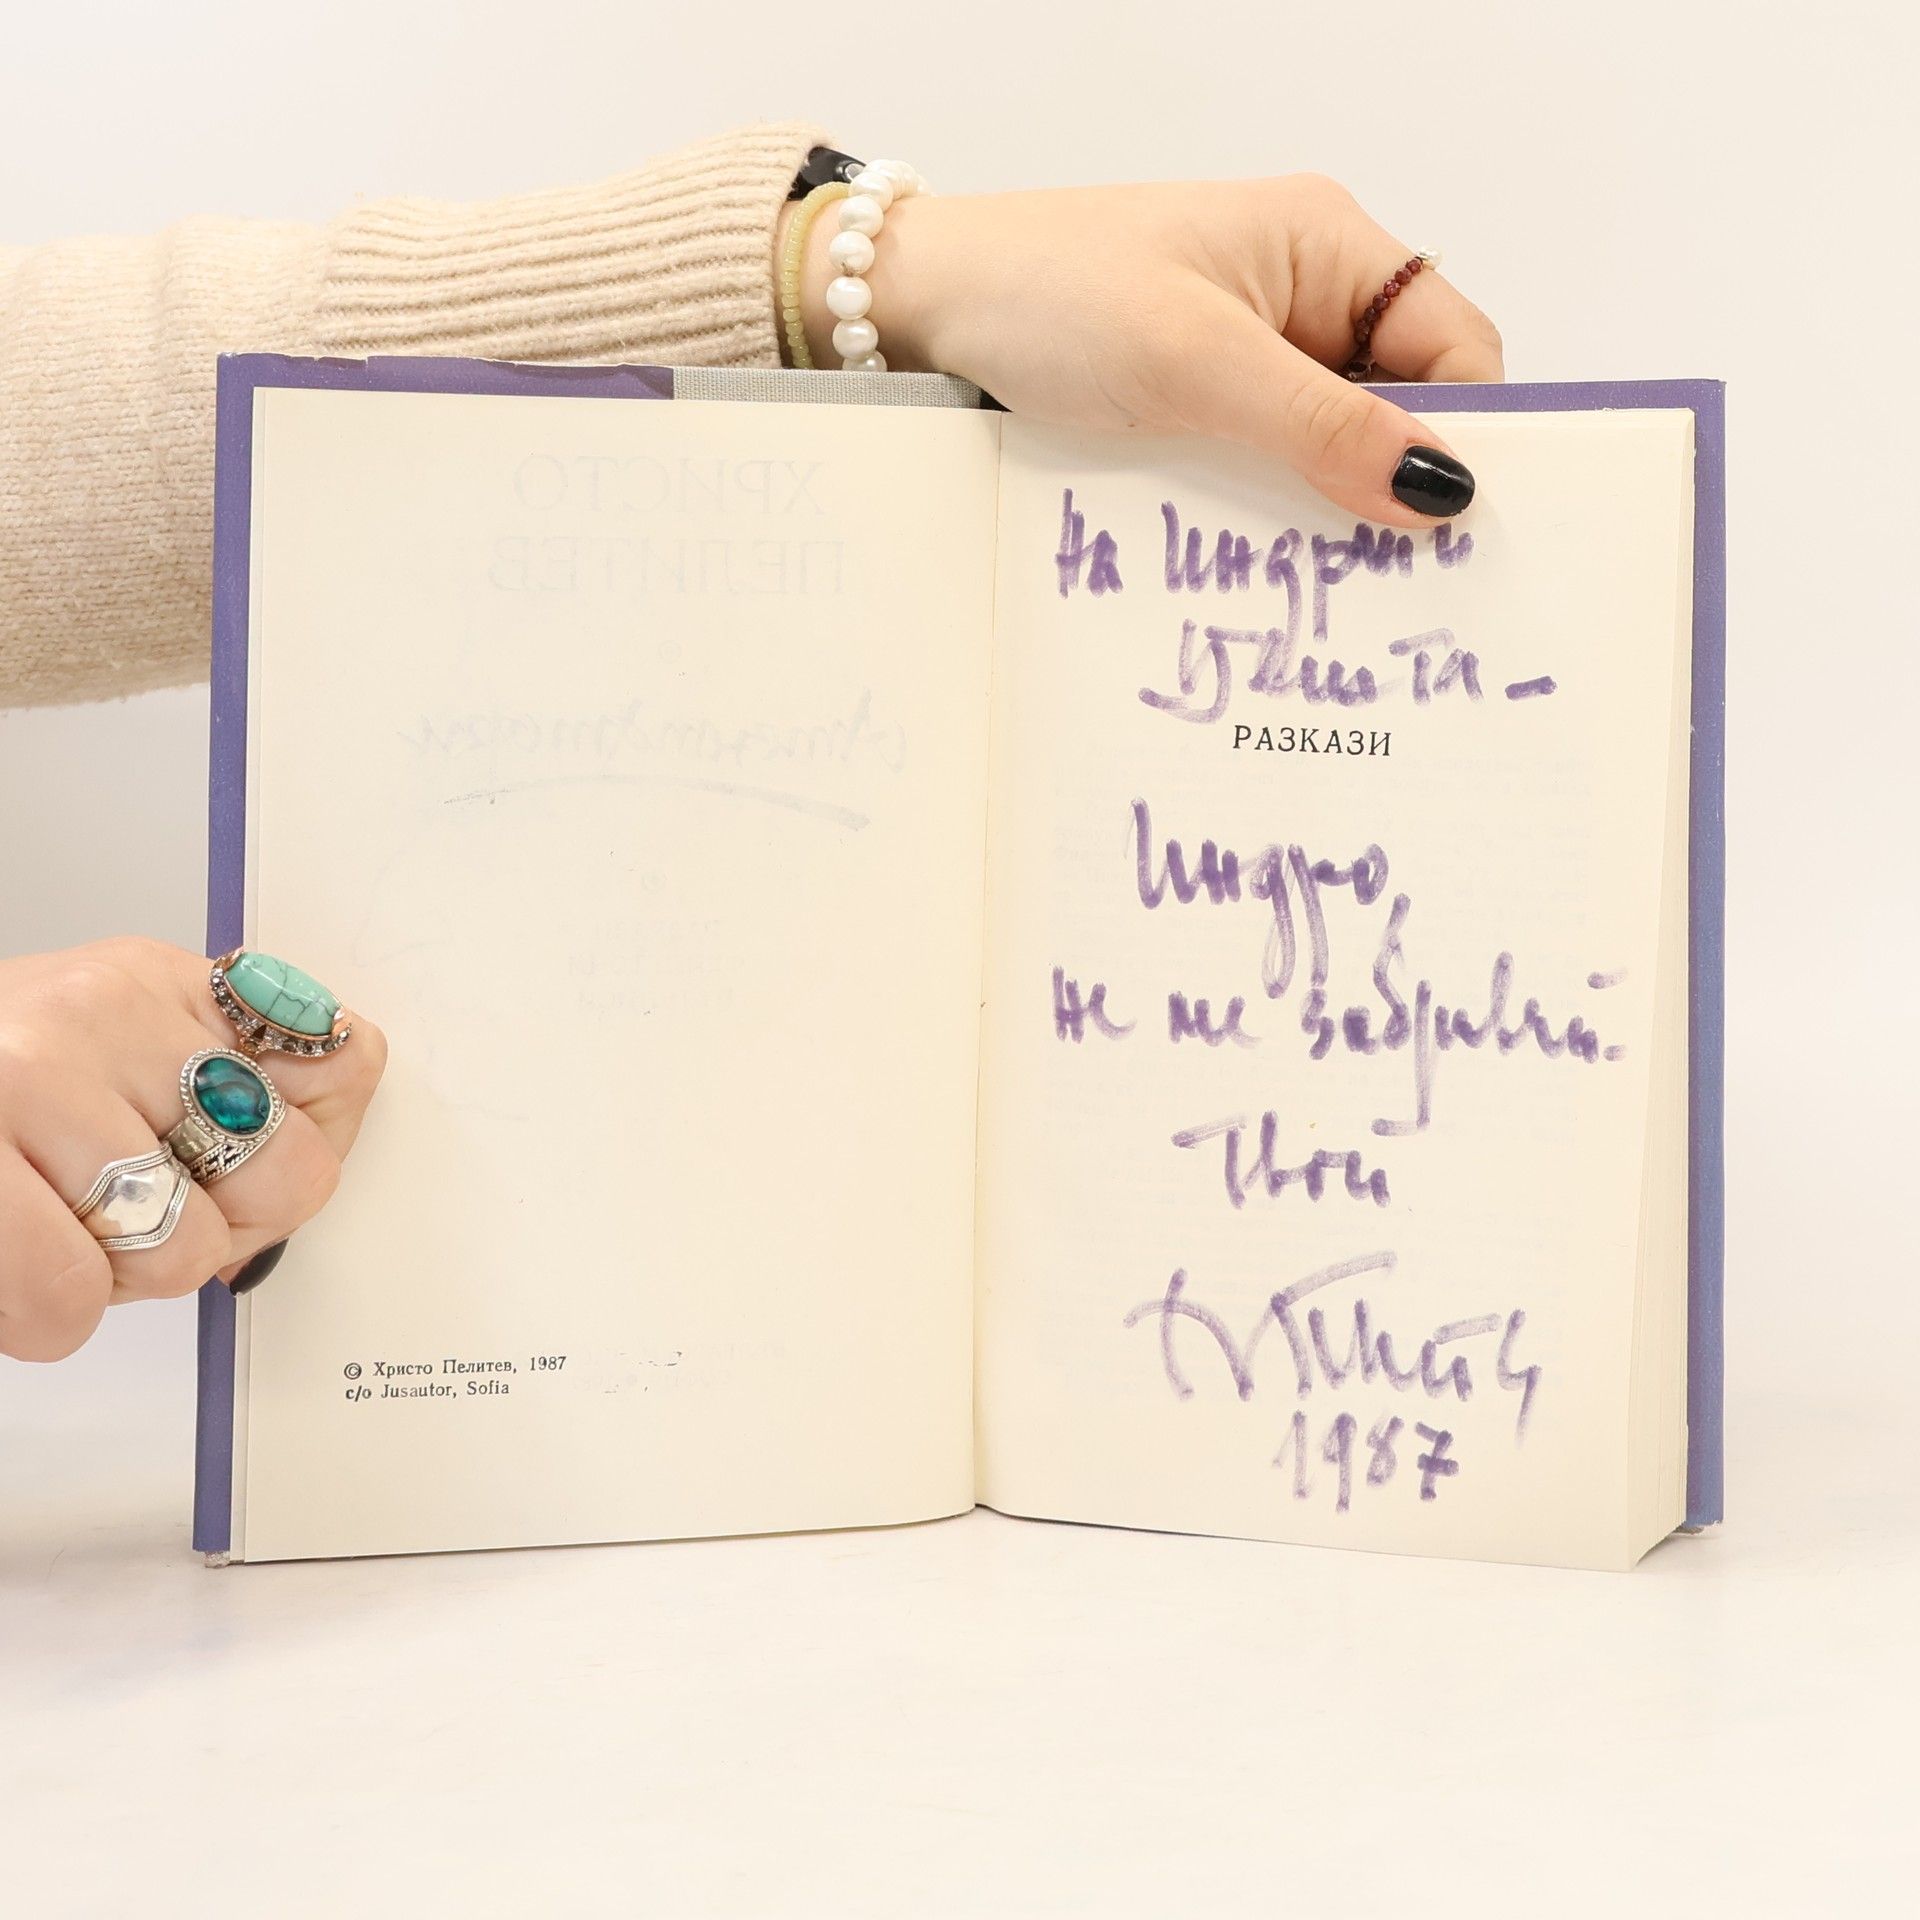 ХРИСТО
ПЕЛИТЕВ
© Христо Пелитев, 1987
c/o Jusautor, Sofia
На Индрми
РАЗКАЗИ
Индро,
не ме забравяй.
Твой
1987